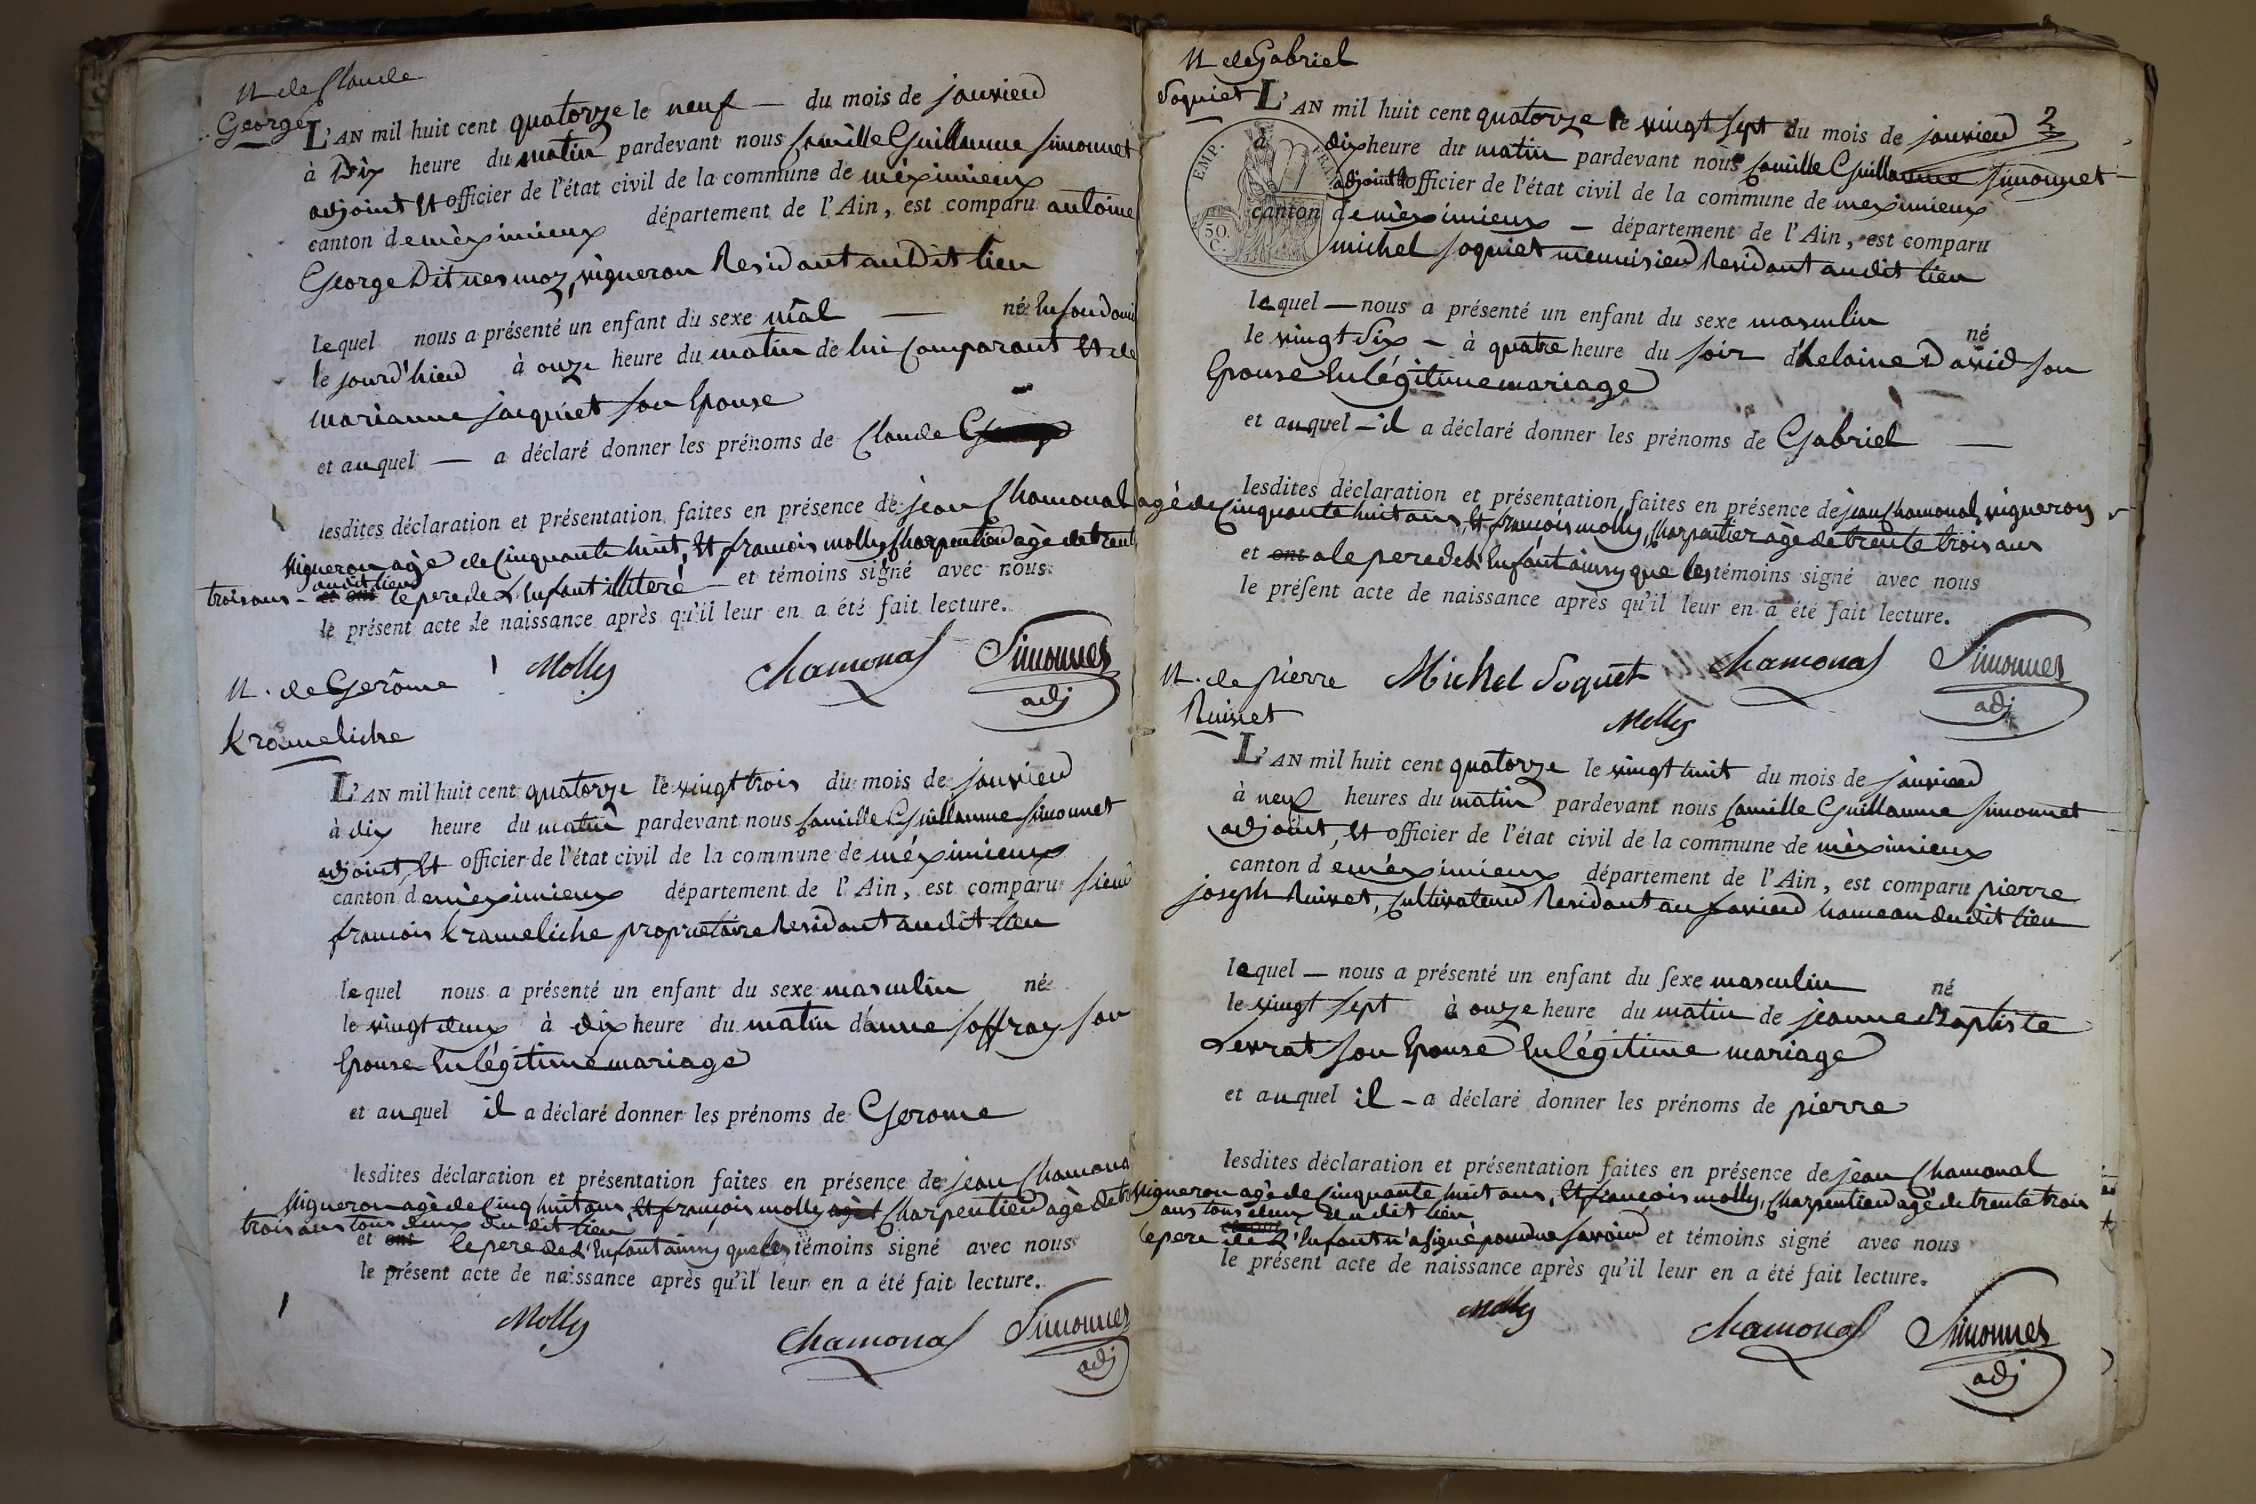 N de Claude
George
L'AN mil huit cent quatorze le neuf — du mois de janvier
à Dix heure du matin pardevant nous Camille Guillaume Simonnet
adjoint et officier de l'état civil de la commune de mèximieux
canton de mèximieux département de l'Ain, est comparu antoine
George Dit nesmoz, vigneron Residant audit lieu
lequel nous a présenté un enfant du sexe mâl — né en son domi
le jourd'hier à onze heure du matin de lui comparant et de
marianne jacquiet son Epouse
et auquel — a déclaré donner les prénoms de Claude
lesdites déclaration et présentation faites en présence de jean Chamonal
vigneron agè de cinquante huit, et francois molly charpentier agè de trente
trois ans - audit lieu et ont le pere de l'Enfant illiteré — et témoins signé avec nous
le présent acte de naissance après qu'il leur en a été fait lecture.
Molly Chamonal Simonnet
adj
N. de Gerôme
Krameliche
L'AN mil huit cent quatorze le vingt trois du mois de janvier
à dix heure du matin pardevant nous Camille Guillaume Simonnet
adjoint, et officier de l'état civil de la commune de méximieux
canton de mèximieux département de l'Ain, est comparu sieur
francois Krameliche proprietaire Residant audit lieu
lequel nous a présenté un enfant du sexe masculin né
le vingt deux à dix heure du matin d'anne soffray son
Epouse en légitime mariage
et auquel il a déclaré donner les prénoms de Gerome
lesdites déclaration et présentation faites en présence de jean Chamonal
vigneron agè de cinq huit ans, et françois molly agèt charpentier agè de t
trois ans tous deux dudit lieu
et ont le pere de l'Enfant ainsy que les témoins signé avec nous
le présent acte de naissance après qu'il leur en a été fait lecture.
Molly Chamonal Simonnet
adj
N de Gabriel
Soquiet
2
L'AN mil huit cent quatorze le vingt sept du mois de janvier
à dix heure du matin pardevant nous Camille Guillaume Simonnet
adjoint et officier de l'état civil de la commune de meximieux
canton de mèximieux — département de l'Ain, est comparu
michel soquiet menuisier Residant audit lieu
EMP. FRAN
50. C.
lequel — nous a présenté un enfant du sexe masculin né
le vingt six - à quatre heure du soir d'helaine David son
Epouse en légitime mariage
et auquel - il a déclaré donner les prénoms de Gabriel —
lesdites déclaration et présentation faites en présence de jean Chamonal, vigneron
agè de cinquante huit ans, et francois molly, charpentier àgè de trente trois ans
et ont a le pere de l'Enfant ainsy que les témoins signé avec nous
le présent acte de naissance après qu'il leur en a été fait lecture.
Michel Soquet Chamonal Simonnet
Molly adj
N. de pierre
Ruivet
L'AN mil huit cent quatorze le vingt huit du mois de janvier
à neuf heures du matin pardevant nous Camille Guillaume Simonnet
adjoint, et officier de l'état civil de la commune de mèximieux
canton de méximieux département de l'Ain, est comparu pierre
joseph Ruivet, cultivateur Residant au hameau dudit lieu
lequel — nous a présenté un enfant du sexe masculin né
le vingt sept à onze heure du matin de jeanne Baptiste
son Epouse en légitime mariage
et auquel il - a déclaré donner les prénoms de pierre
lesdites déclaration et présentation faites en présence de jean Chamonal
vigneron agè de cinquante huit ans, et francois molly, charpentier agé de trente trois
ans tous deux dudit lieu
le pere de l'Enfant n'a signé pour ne savoir et témoins signé avec nous
le présent acte de naissance après qu'il leur en a été fait lecture.
Molly Chamonal Simonnet
adj